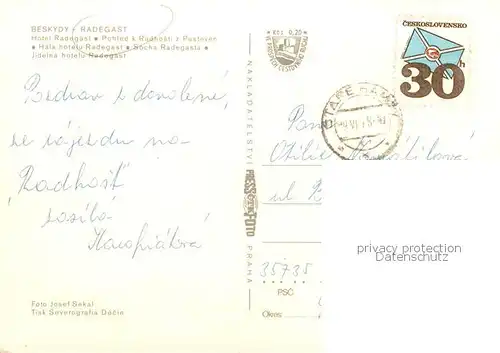 BESKYDY - RADEGAST
Hotel Radegast • Pohled k Radhošti z Pusteven
• Hala hotelu Radegast • Socha Radegasta •
Jídelna hotelu Radegast
Kčs 0,20
ČESKOSLOVENSKO
30h
STARÉ HAMRY
Pozdrav z dovolené,
ze zájezdu na
„Radhošť"
zasílá
NAKLADATELSTVÍ
PRESSFOTO
PRAHA
Pan
Otilie
ul.
35735
PSČ
Okres:
privacy protection
Datenschutz
Foto Josef Sekal
Tisk Severografia Děčín